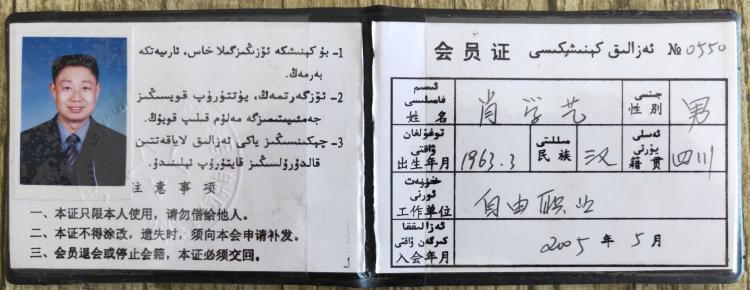 1- بۇ كېنىشكە ئۆزىڭىزگىلا خاس، ئارىيەتكە
بەرمەڭ.
2- ئۆزگەرتمەڭ، يۈتتۈرۈپ قويسىڭىز
جەمئىيىتىمىزگە مەلۇم قىلىپ قويۇڭ.
3- چېكىنسىڭىز ياكى ئەزالىق لاياقەتتىن
قالدۇرۇلسىڭىز قايتۇرۇپ ئېلىنىدۇ.
注意事项
一、本证只限本人使用，请勿借给他人。
二、本证不得涂改，遗失时，须向本会申请补发。
三、会员退会或停止会籍，本证必须交回。
会员证 ئەزالىق كېنىشكىسى № 0550
ئىسىم
فامىلىسى
姓名
肖学艺
جىنسى
性别
男
تۇغۇلغان
ۋاقتى
出生年月
1963.3
مىللىتى
民族
汉
ئەسلى
يۇرتى
籍贯
四川
خىزمەت
ئورنى
工作单位
自由职业
ئەزالىققا
كىرگەن ۋاقتى
入会年月
2005年5月